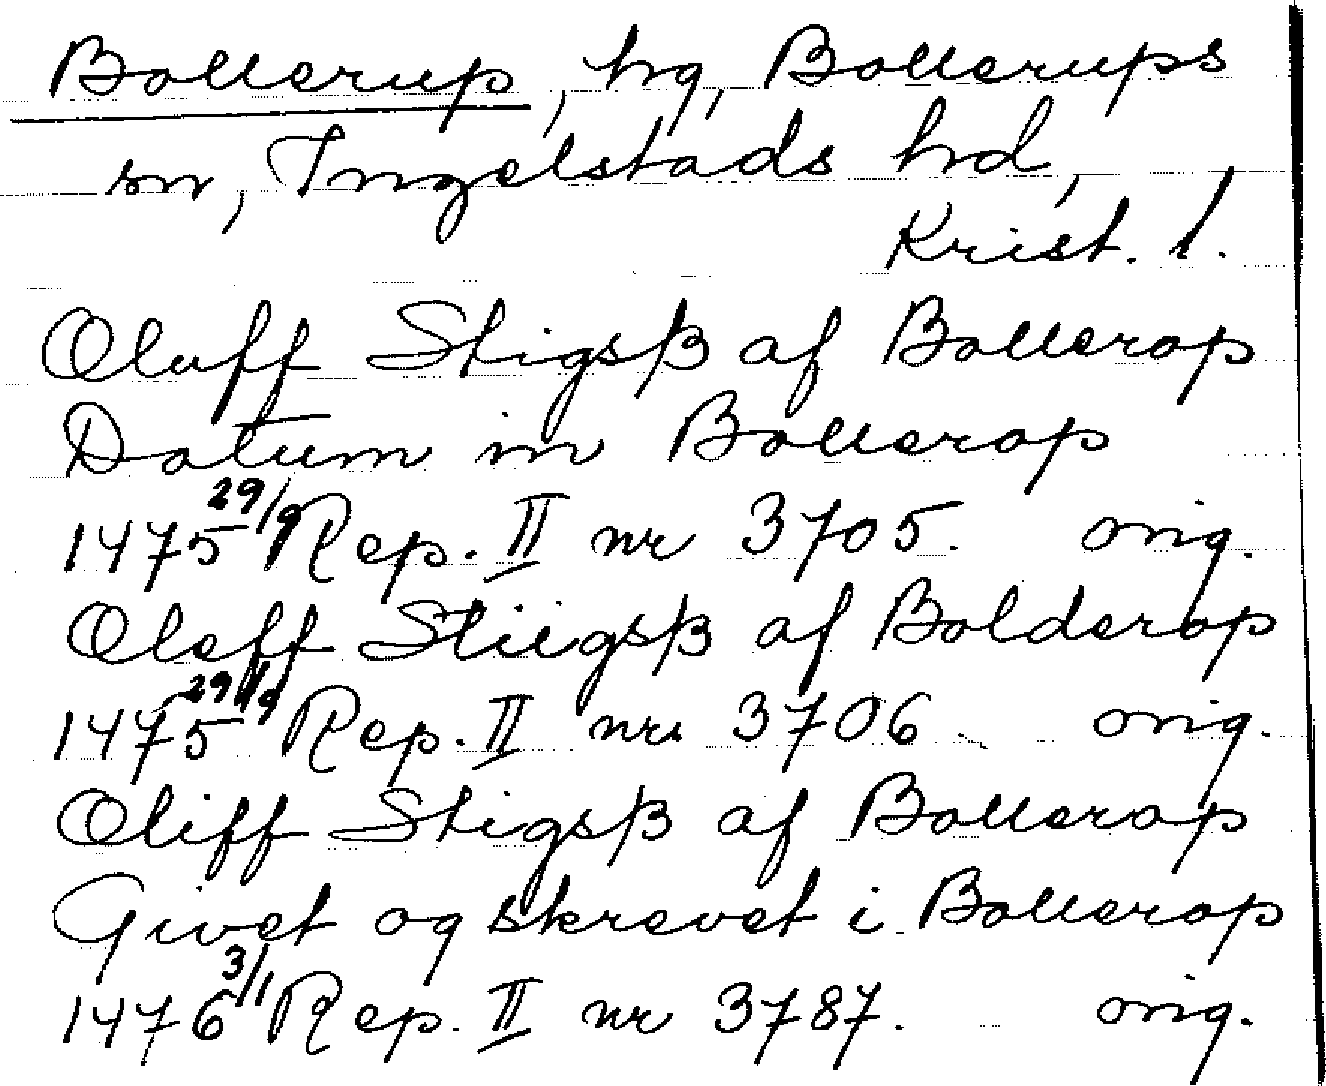 Bollerup, hg, Bollerups
sn, Ingelstads hd,
Krist. l.
Oluff Stigsß af Bollerop
Datum in Bollerop
1475 29/9 Rep. II nr 3705. orig.
Oleff Stiigsß af Bolderop
1475 29/9 Rep. II nr 3706 orig.
Oliff Stigsß af Bollerop
Givet og skrevet i Bollerop
1476 3/1 Rep. II nr 3787. orig.